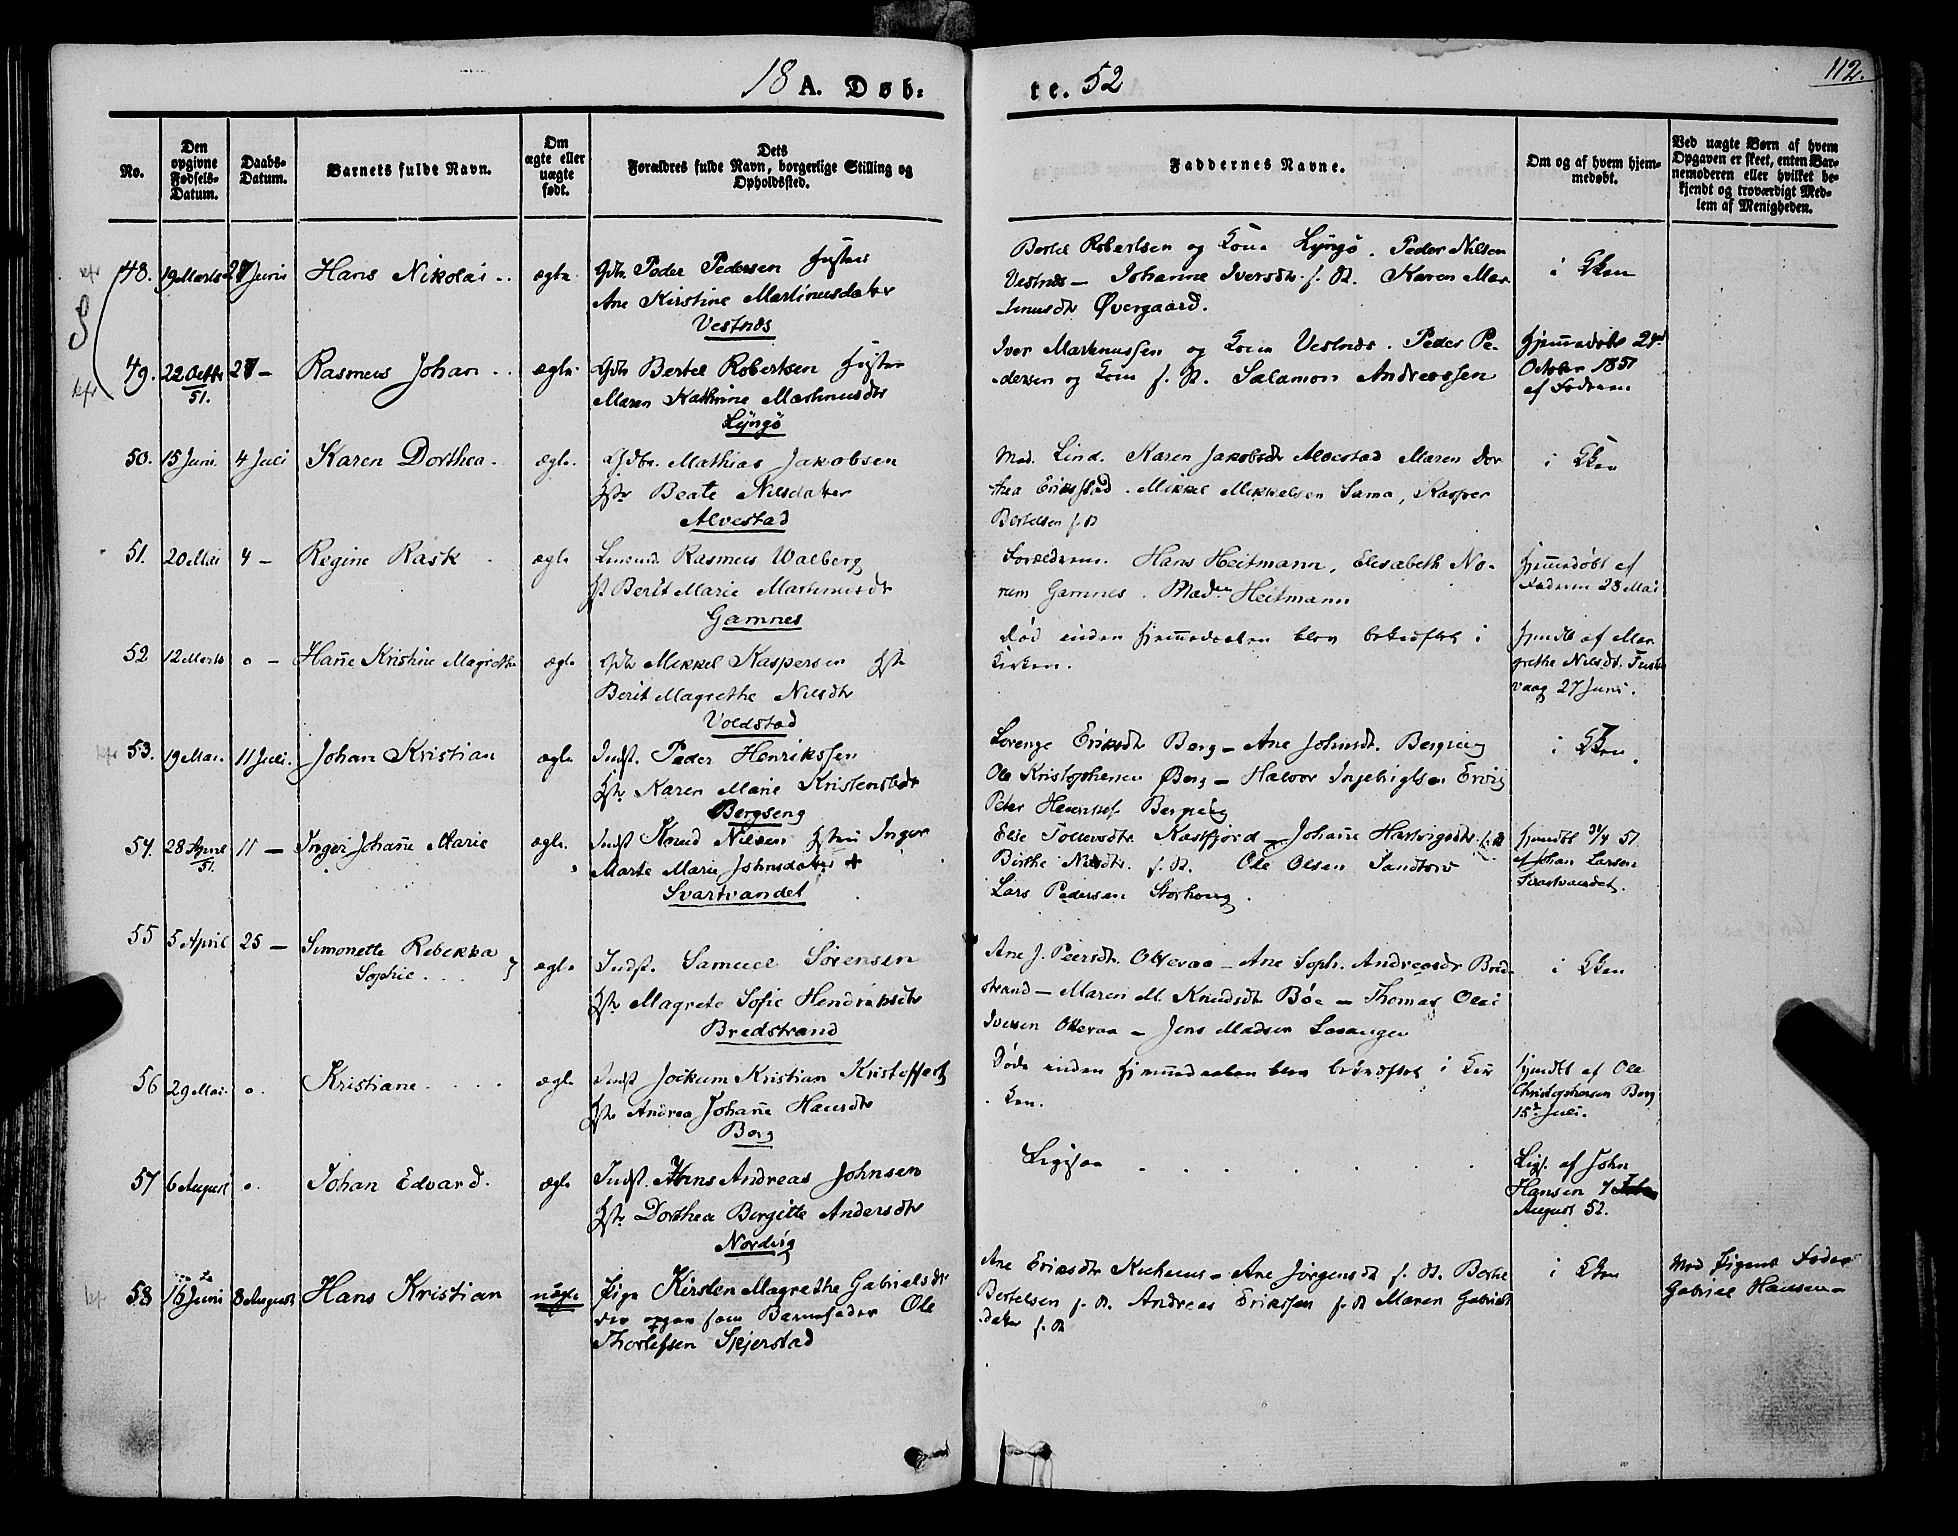 18 A. Døb-
te. 52
112.
No.
Den
opgivne
Fødsels-
Datum.
Daabs-
Datum.
Barnets fulde Navn.
Om
ægte eller
uægte
født.
Dets
Forældres fulde Navn, borgerlige Stilling og
Opholdssted.
Faddernes Navne.
Om og af hvem hjem-
medøbt.
Ved uægte Børn af hvem
Opgaven er skeet, enten Bar-
nemoderen eller hvilket be-
kjendt og troværdigt Med-
lem af Menigheden.
48. 19 Marts 27 Juni Hans Nikolai ægte Peder Pedersen
Ane Kirstine Martinusdatter
Vestnæs
Bertel Robertsen og Kone Lyngø. Peder Nilsen
Vestnæs – Johanne Iversdtr. f. St. Karen Mar
tinusdtr Øvergaard.
i Kken
49. 22 Octbr 51. 27 – Rasmus Johan ægte Bertel Robertsen
Maren Kathrine Martinusdtr
Lyngø
Iver Martinussen og Kone Vestnæs. Peder Pe-
dersen og Kone f. St. Salamon Andreassen
Hjemmedøbt
October 1851
af Faderen
50. 15 Juni 4 Juli Karen Dorthea ægte Mathias Jakobsen
Hstr Beate Nilsdatter
Alvestad
Mad. Lind. Karen Jakobsdtr Alvestad Maren Dor
thea Erikstad. Mikkel Mikkelsen Sama, Kasper
Bertelsen f. St
i Kken
51. 20 Mai 4 – Regine Rask ægte Rasmus Walberg
Berit Marie Martinusdtr
Gamnes
Forældrene. Hans Heitmann, Elisabeth No-
rum Gamnes. Madm Heitmann
Hjemmedøbt af
Faderen 23 Mai
52 12 Marts o – Hanne Kristine Magrethe ægte Mikkel Kaspersen Hstr
Berit Magrethe Nilsdtr
Voldstad
Død inden Hjemmedaaben blev bekræftet i
Kirken.
Hjmdbt af Mar
grethe Nilsdt.
vaag 27 Juni.
53. 19 Mai 11 Juli. Johan Kristian ægte Indst. Peder Henrikssen
Hstr Karen Marie Kristensdtr
Bergseng
Lorenze Eriksdtr Berg – Ane Johnsdt. Bergseng
Ole Kristophersen Berg – Halvor Ingebrigtsen Ervig
Peter Henriks. Bergseng
i Kken
54. 28 51. 11 – Inger Johanne Marie ægte. Indst Knud Nilsen Hstru Inger
Marte Marie Johnsdatter +
Svartvandet
Elie Tollevsdtr Kastfjord – Johanne Hartvigsdtr f. St
Birthe Nilsdtr. f. St. Ole Olsen Sandtorv
Lars Pedersen Storhaug.
Hjmdbt 51
af Johan Larsen
Svartvandet.
55 5 April 25 – Simonette Rebekka
Sophie
ægte Indst. Samuel Sørensen
Hstr Magrete Sofie Hendriksdtr
Bredstrand
Ane J. Peersdt. Otteraa – Ane Soph. Andreasdtr Bred-
strand – Maren M. Knudsdt Bøe – Thomas Olai
Iversen Otteraa – Jens Madsen Lavangen
i Kken
56 29 Mai. o. Kristiane ægte Indst Jockum Kristian Kristoffers
Hstr Andrea Johanne Hansdtr
Berg
Døde inden Hjemmedaaben blev bekræftet i Kir
ken.
Hjmdbt af Ole
Christophersen Berg
15de Juli.
57 6 August o. Johan Edvard. ægte Indst. Hans Andreas Johnsen
Hstr Dorthea Bergitte Andersdtr
Nordvig
Ligesaa
Ligs. af John
Hansen 7
August 52.
58 16 Juni 8 August Hans Kristian uægte Pige Kirsten Magrethe Gabrielsdtr
der opgav som Barnefader Ole
Thorlefsen Skjerstad
Ane Eriksdtr – Ane Jørgensdt f. St. Berthe
Bertelsen f. St. Andreas Erikssen f. St Maren Gabriels
datter f. St
i Kken
Mod Pigens Fader
Gabriel Hansen –